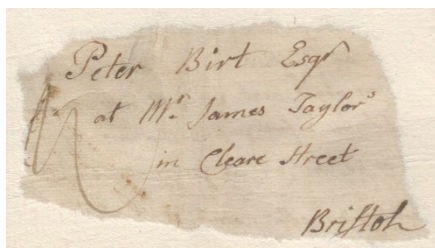 Peter Birt Esqr
at Mr. James Taylors
in Cleare Street
Bristol